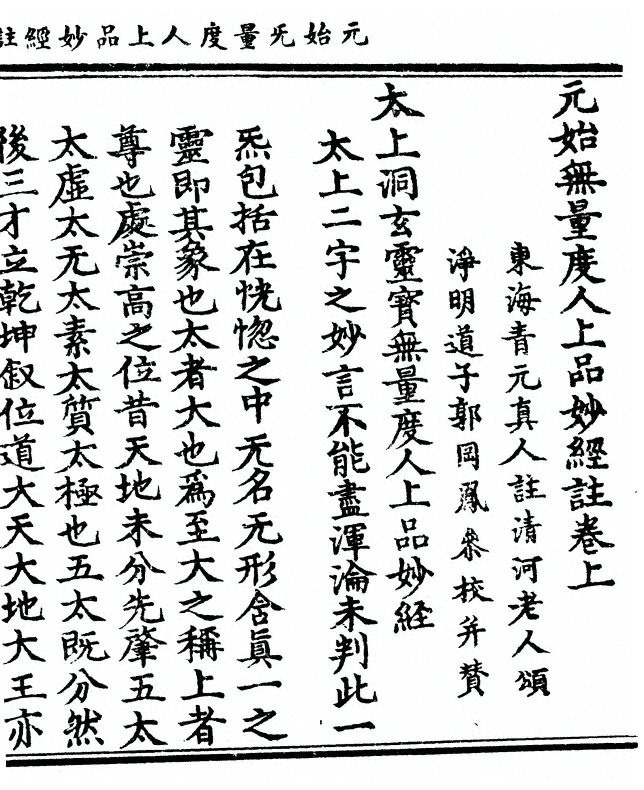 元始旡量度人上品妙經註
元始無量度人上品妙經註卷上
東海青元真人註清河老人頌
淨明道子郭岡鳳叅校并賛
太上洞玄靈寶無量度人上品妙經
太上二字之妙言不能盡渾淪未判此一
炁包括在恍惚之中无名无形含真一之
靈即其象也太者大也爲至大之稱上者
尊也處崇高之位昔天地未分先肇五太
太虛太无太素太質太極也五太既分然
後三才立乾坤叙位道大天大地大王亦